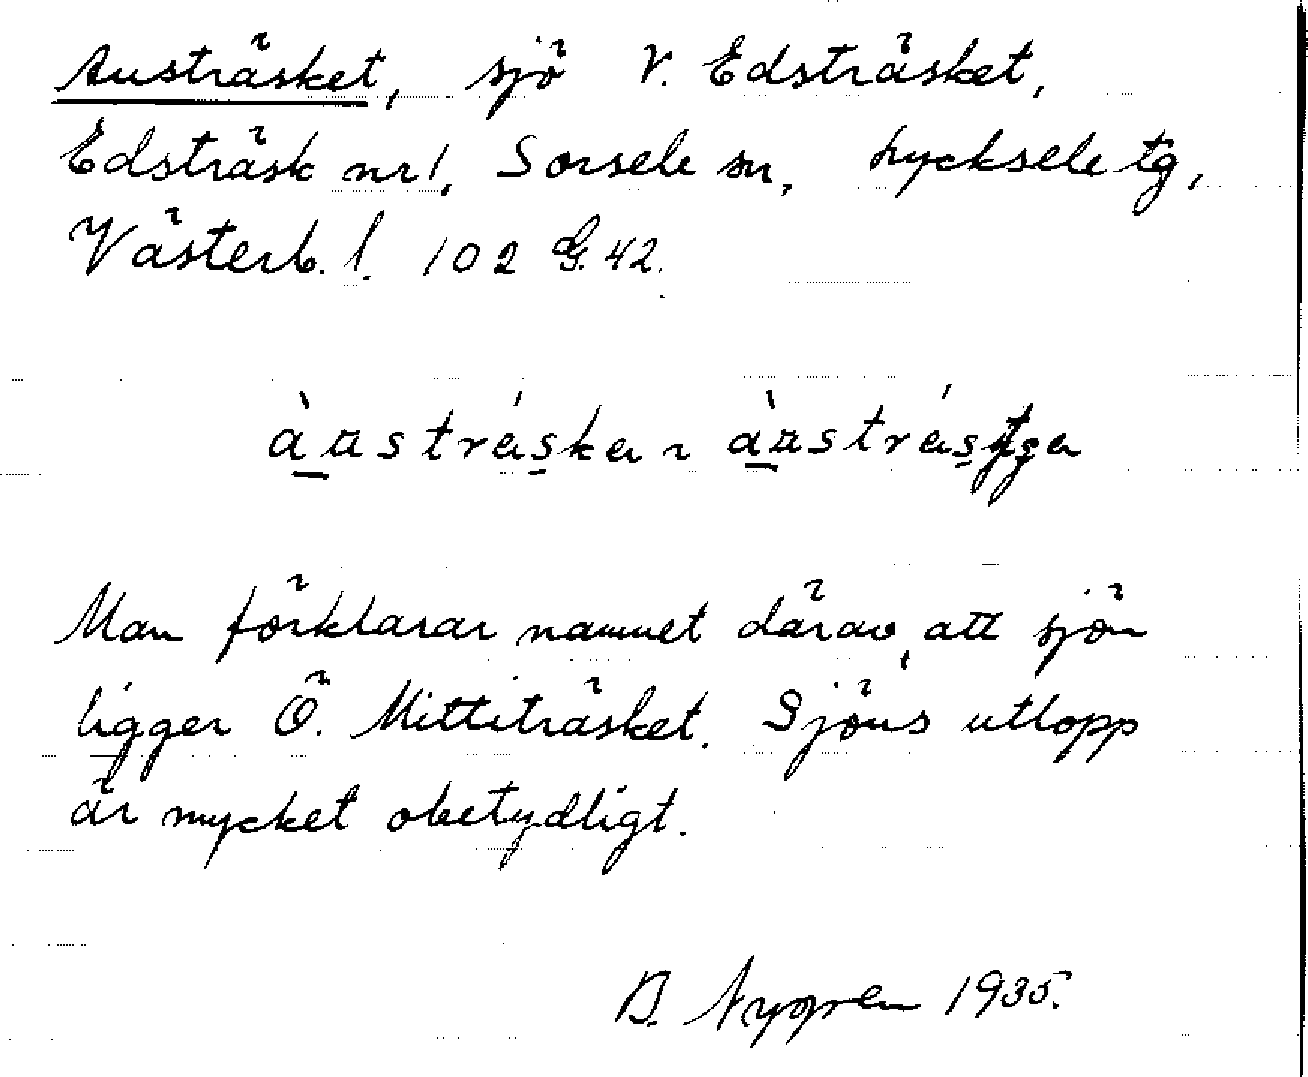 Austräsket, sjö V. Edsträsket,
Edsträsk nr 1, Sorsele sn, Lycksele tg,
Västerb. l. 102 G. 42.
Man förklarar namnet därav, att sjön
ligger Ö. Mittiträsket. Sjöns utlopp
är mycket obetydligt.
B. Nygren 1935.